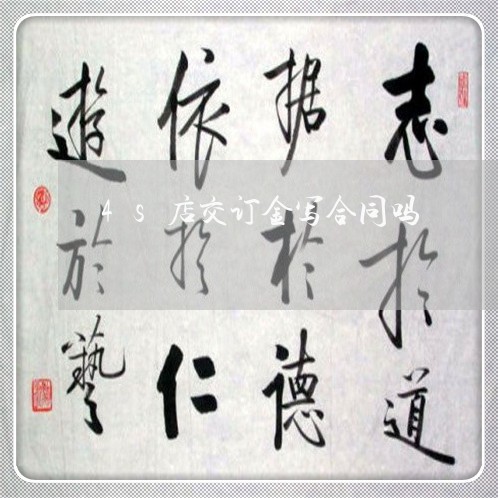 志於道
据於德
依於仁
遊於藝
4s店交订金写合同吗